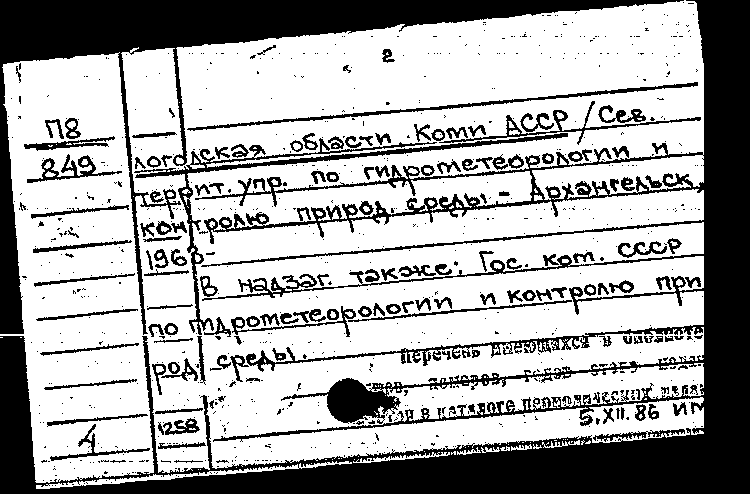 2
П8
849
логодская области. Коми АССР / Сев.
террит. упр. по гидрометеорологии и
контролю природ. среды. - Архангельск,
1963-
В надзаг. также: Гос. ком. СССР
по гидрометеорологии и контролю при
род. среды.
Перечень имеющихся в библиоте
номеров, годов этого
в каталоге периодических
4
1258
5.XII.86 ИМ